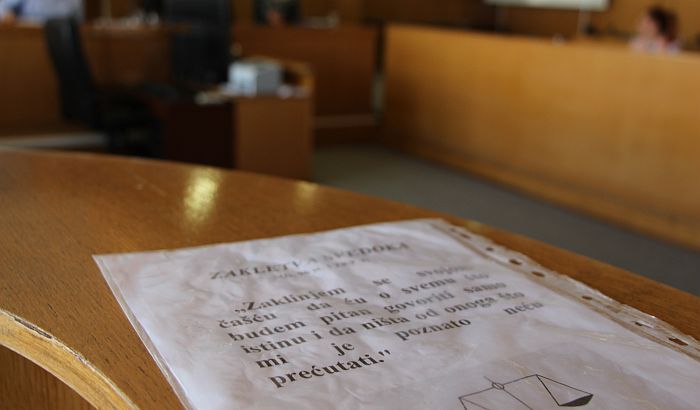 ZAKLETVA SVEDOKA
„Zaklinjem se svojom
čašću da ću o svemu što
budem pitan govoriti samo
istinu i da ništa od onoga što
mi je poznato neću
prećutati."